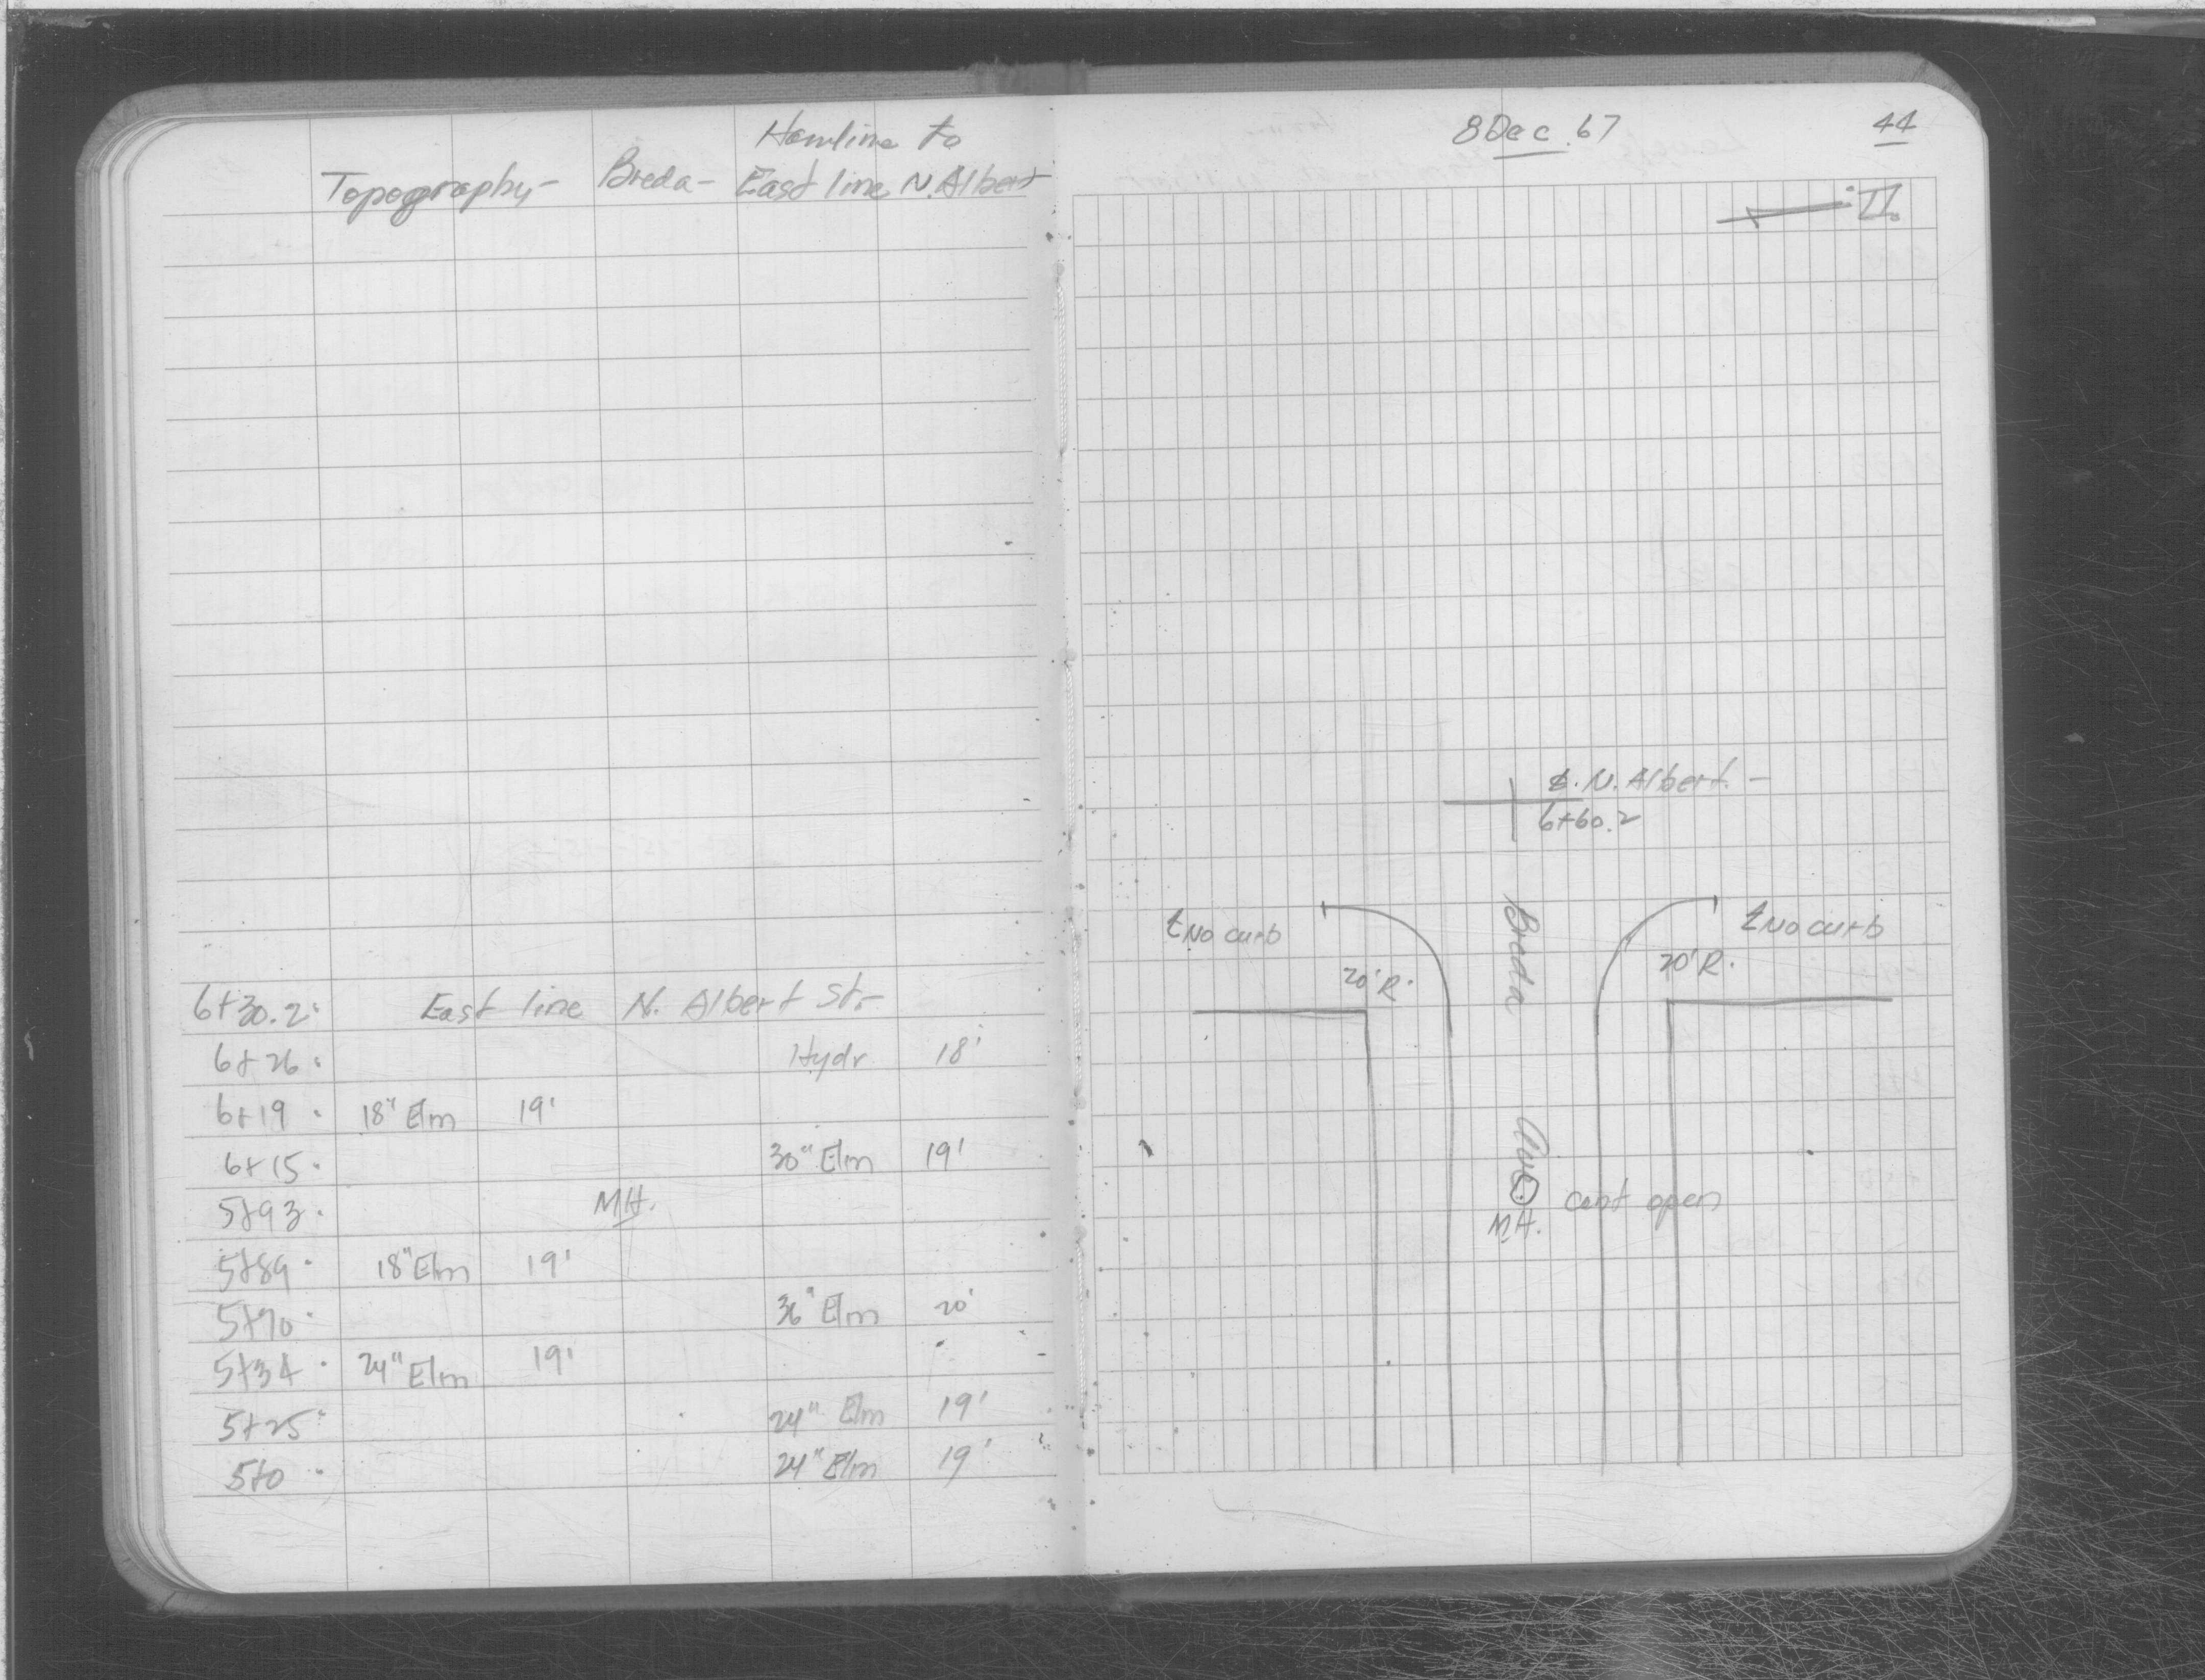 Hamline to
Topography- Breda- East line N. Albert
6+30.2 East line N. Albert St.-
6+26 Hydr 18'
6+19 18" Elm 19'
6+15 30" Elm 19'
5+93 MH.
5+89 18" Elm 19'
5+70 36" Elm 20'
5+34 24" Elm 19'
5+25 24" Elm 19'
5+0 24" Elm 19'
8 Dec. 67 44
II.
℄. N. Albert. -
6+60.2
No curb
20' R.
Breda Ave
No curb
20' R.
M.H. cant open